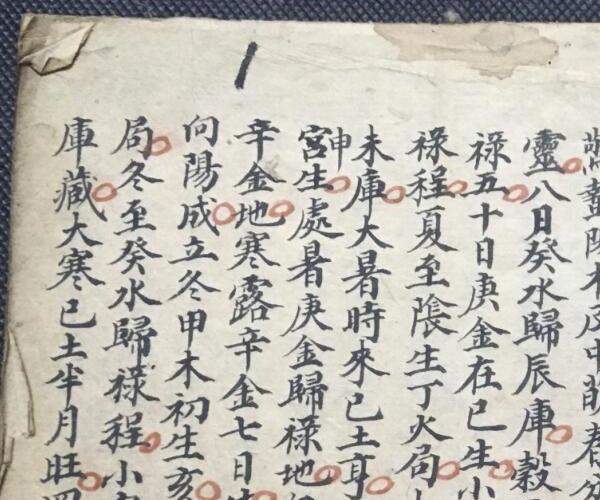 靈八日癸水歸辰庫穀
祿五十日庚金在巳生小
祿程夏至陰生丁火局
未庫大暑時來己土享
申宮生處暑庚金歸祿地
辛金地寒露辛金七日
向陽成立冬甲木初生亥
局冬至癸水歸祿程小
庫藏大寒己土半月旺